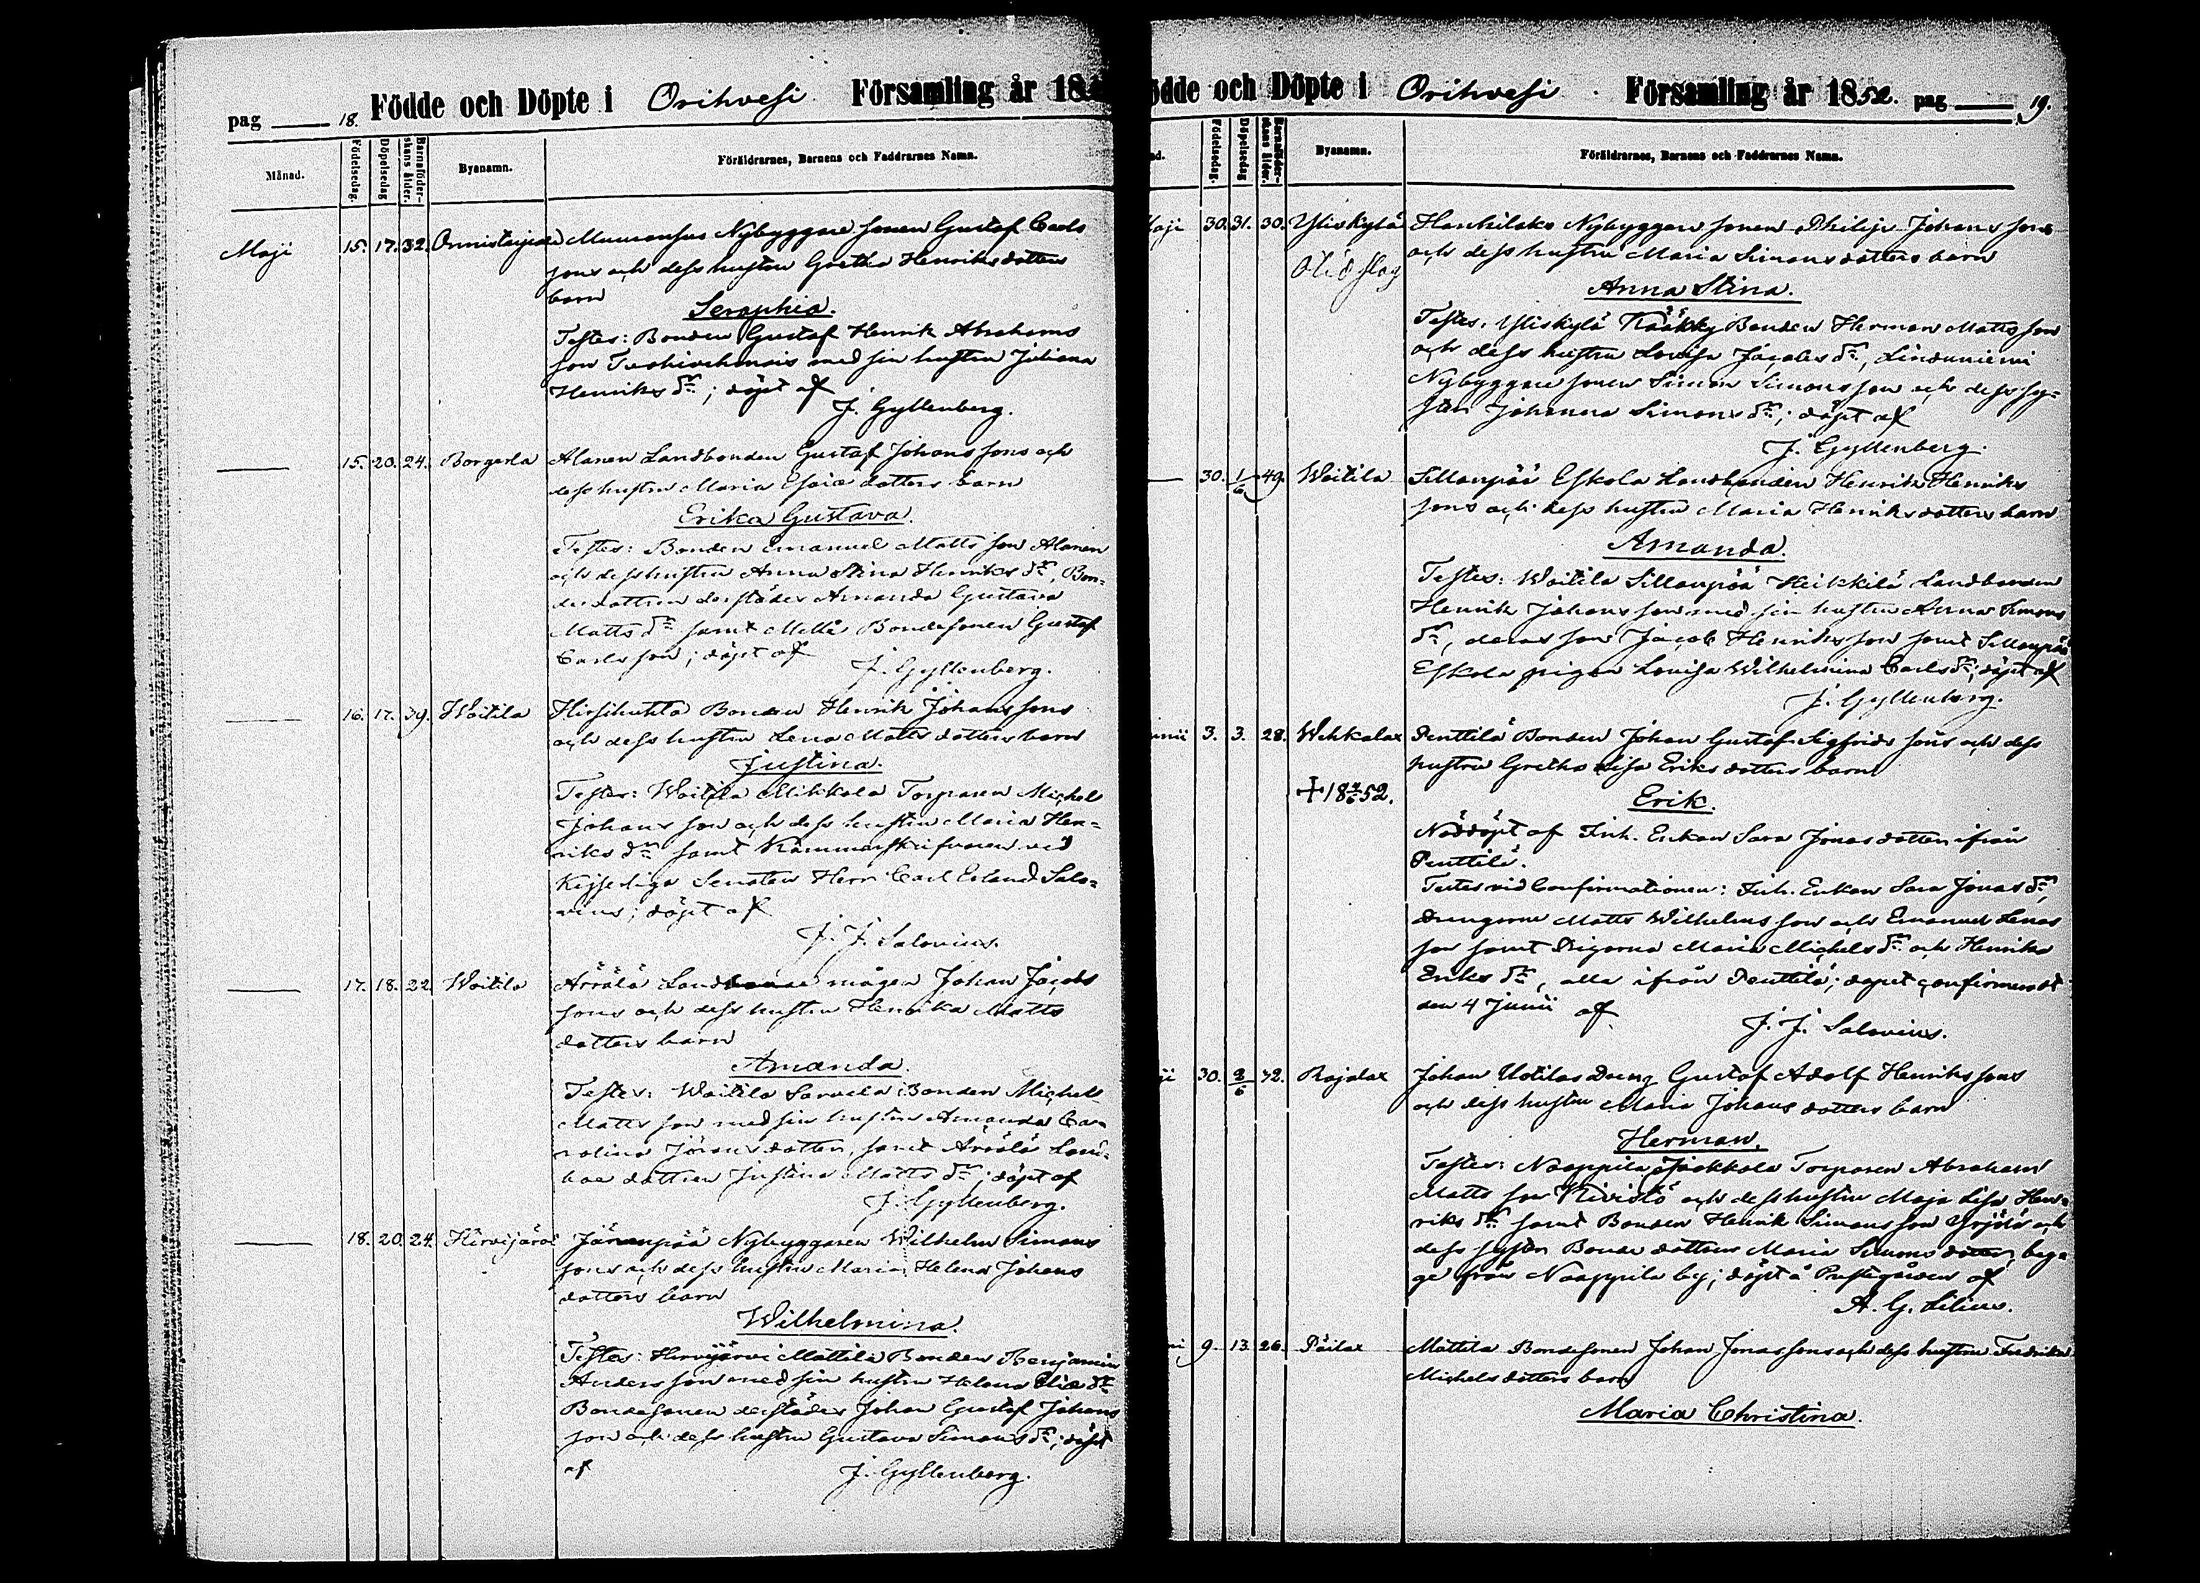 pag 18. Födde och Döpte i Orihvesi Församling år 18
Månad. Födelsedag. Döpelsedag Barnaföderskans ålder. Byanamn. Föräldrarnes, Barnens och Faddrarnes Namn.
Maji 15. 17. 32. Nybyggare sonen Gustaf Carls
sons och dess hustru Gretha Henriks dotters
barn
Seraphia.
Testes: Bonden Gustaf Henrik Abrahams
son med sin hustru Juliana
Henriks dr; döpt af
J. Gyllenberg.
15. 20. 24. Borgerla Alanen Landbonden Gustaf Johans sons och
dess hustru Maria Esaiæ dotters barn
Erika Gustava.
Testes: Bonden Emanuel Matts son Alanen
och dess hustru Anna Stina Henriks dr, Bon=
de dottren derstädes Amanda Gustava
Matts dr samt Bondesonen Gustaf
Carls son; döpt af
J. Gyllenberg.
16. 17. 39. Woitila Hirsihuhta Bonden Henrik Johans sons
och dess hustru Lena Matts dotters barn
Justina.
Testes: Woitila Mikkola Torparen Michel
Johans son och dess hustru Maria Hen=
riks dr samt Kammarskrifvaren vid
Kejserliga Senaten Herr Carl Erland Salo=
vius; döpt af
J. J. Salovius.
17. 18. 22 Woitila Ärrälä Landbonde mågen Johan Jacobs
sons och dess hustru Henrika Matts
dotters barn
Amanda.
Testes: Woitila Sarvela Bonden Michel
Matts son med sin hustru Amanda Ca=
rolina Jöransdotter, samt Ärrälä Land=
boe dottren Justina Matts dr; döpt af
J. Gyllenberg.
18. 20. 24. Hirvijärvi Järvenpää Nybyggaren Wilhelm Simons
sons och dess hustru Maria Helena Johans
dotters barn
Wilhelmina.
Testes: Hirvijärvi Mattila Bonden Benjamin
Anders son med sin hustru Helena Eliæ dr
Bondesonen derstädes Johan Gustaf Johans
son och dess hustru Gustava Simons dr; döpt
af J. Gyllenberg.
ödde och Döpte i Orihvesi Församling år 1852. pag 19.
ad. Födelsedag. Döpelsedag Barnaföderskans ålder. Byanamn. Föräldrarnes, Barnens och Faddrarnes Namn.
Maji 30. 31. 30. Yliskylä Nybyggare sonen Philip Johans sons
och dess hustru Maria Simons dotters barn
Anna Stina.
Testes: Yliskylä Bonden Herman Matts son
och dess hustru Lovisa Jacobs dr, Linduniemi
Nybyggare sonen Simon Simons son och dess sy=
ster Johanna Simons dr; döpt af
J. Gyllenberg.
30. 1/6 49. Woitila Sillanpää Eskola Landbonden Henrik Henriks
sons och dess hustru Maria Henriks dotters barn
Amanda.
Testes: Woitila Sillanpää Heikkilä Landbonden
Henrik Johans son med sin hustru Anna Simons
dr, deras son Jacob Henriks son samt Sillanpää
Eskola pigan Lovisa Wilhelmina Carls dr; döpt af
J. Gyllenberg.
unii 3. 3. 28. Wehkalax Penttilä Bonden Johan Gustaf Sigfrids sons och dess
hustru Gretha Lisa Eriks dotters barn
Erik.
Nöddöpt af Inh. Enkan Sara Jonas dotter ifrån
Penttilä.
Testes vid Confirmationen: Inh. Enkan Sara Jonas dr,
Drengarne Matts Wilhelms son och Emanuel
son samt Pigorna Maria Michels dr och Henrika
Eriks dr, alla ifrån Penttilä; dopet confirmeradt
den 4 Junii af
J. J. Salovius.
30. 2/6 32. Rajalax Johan Uotilas Dreng Gustaf Adolf Henriks sons
och dess hustru Maria Johans dotters barn
Herman.
Testes: Naappila Jaakkola Torparen Abraham
Matts son Kivistö och dess hustru Maja Lisa Hen=
riks dr samt Bonden Henrik Simons son Yrjölä och
dess syster Bonde dottren Maria Simons dotter, beg=
ge från Naappila by; döpt å Prestgården af
A. G. Lilius.
9. 13. 26. Päilax Mattila Bondesonen Johan Jonas sons och dess hustru Fredrika
Michels dotters barn
Maria Christina.